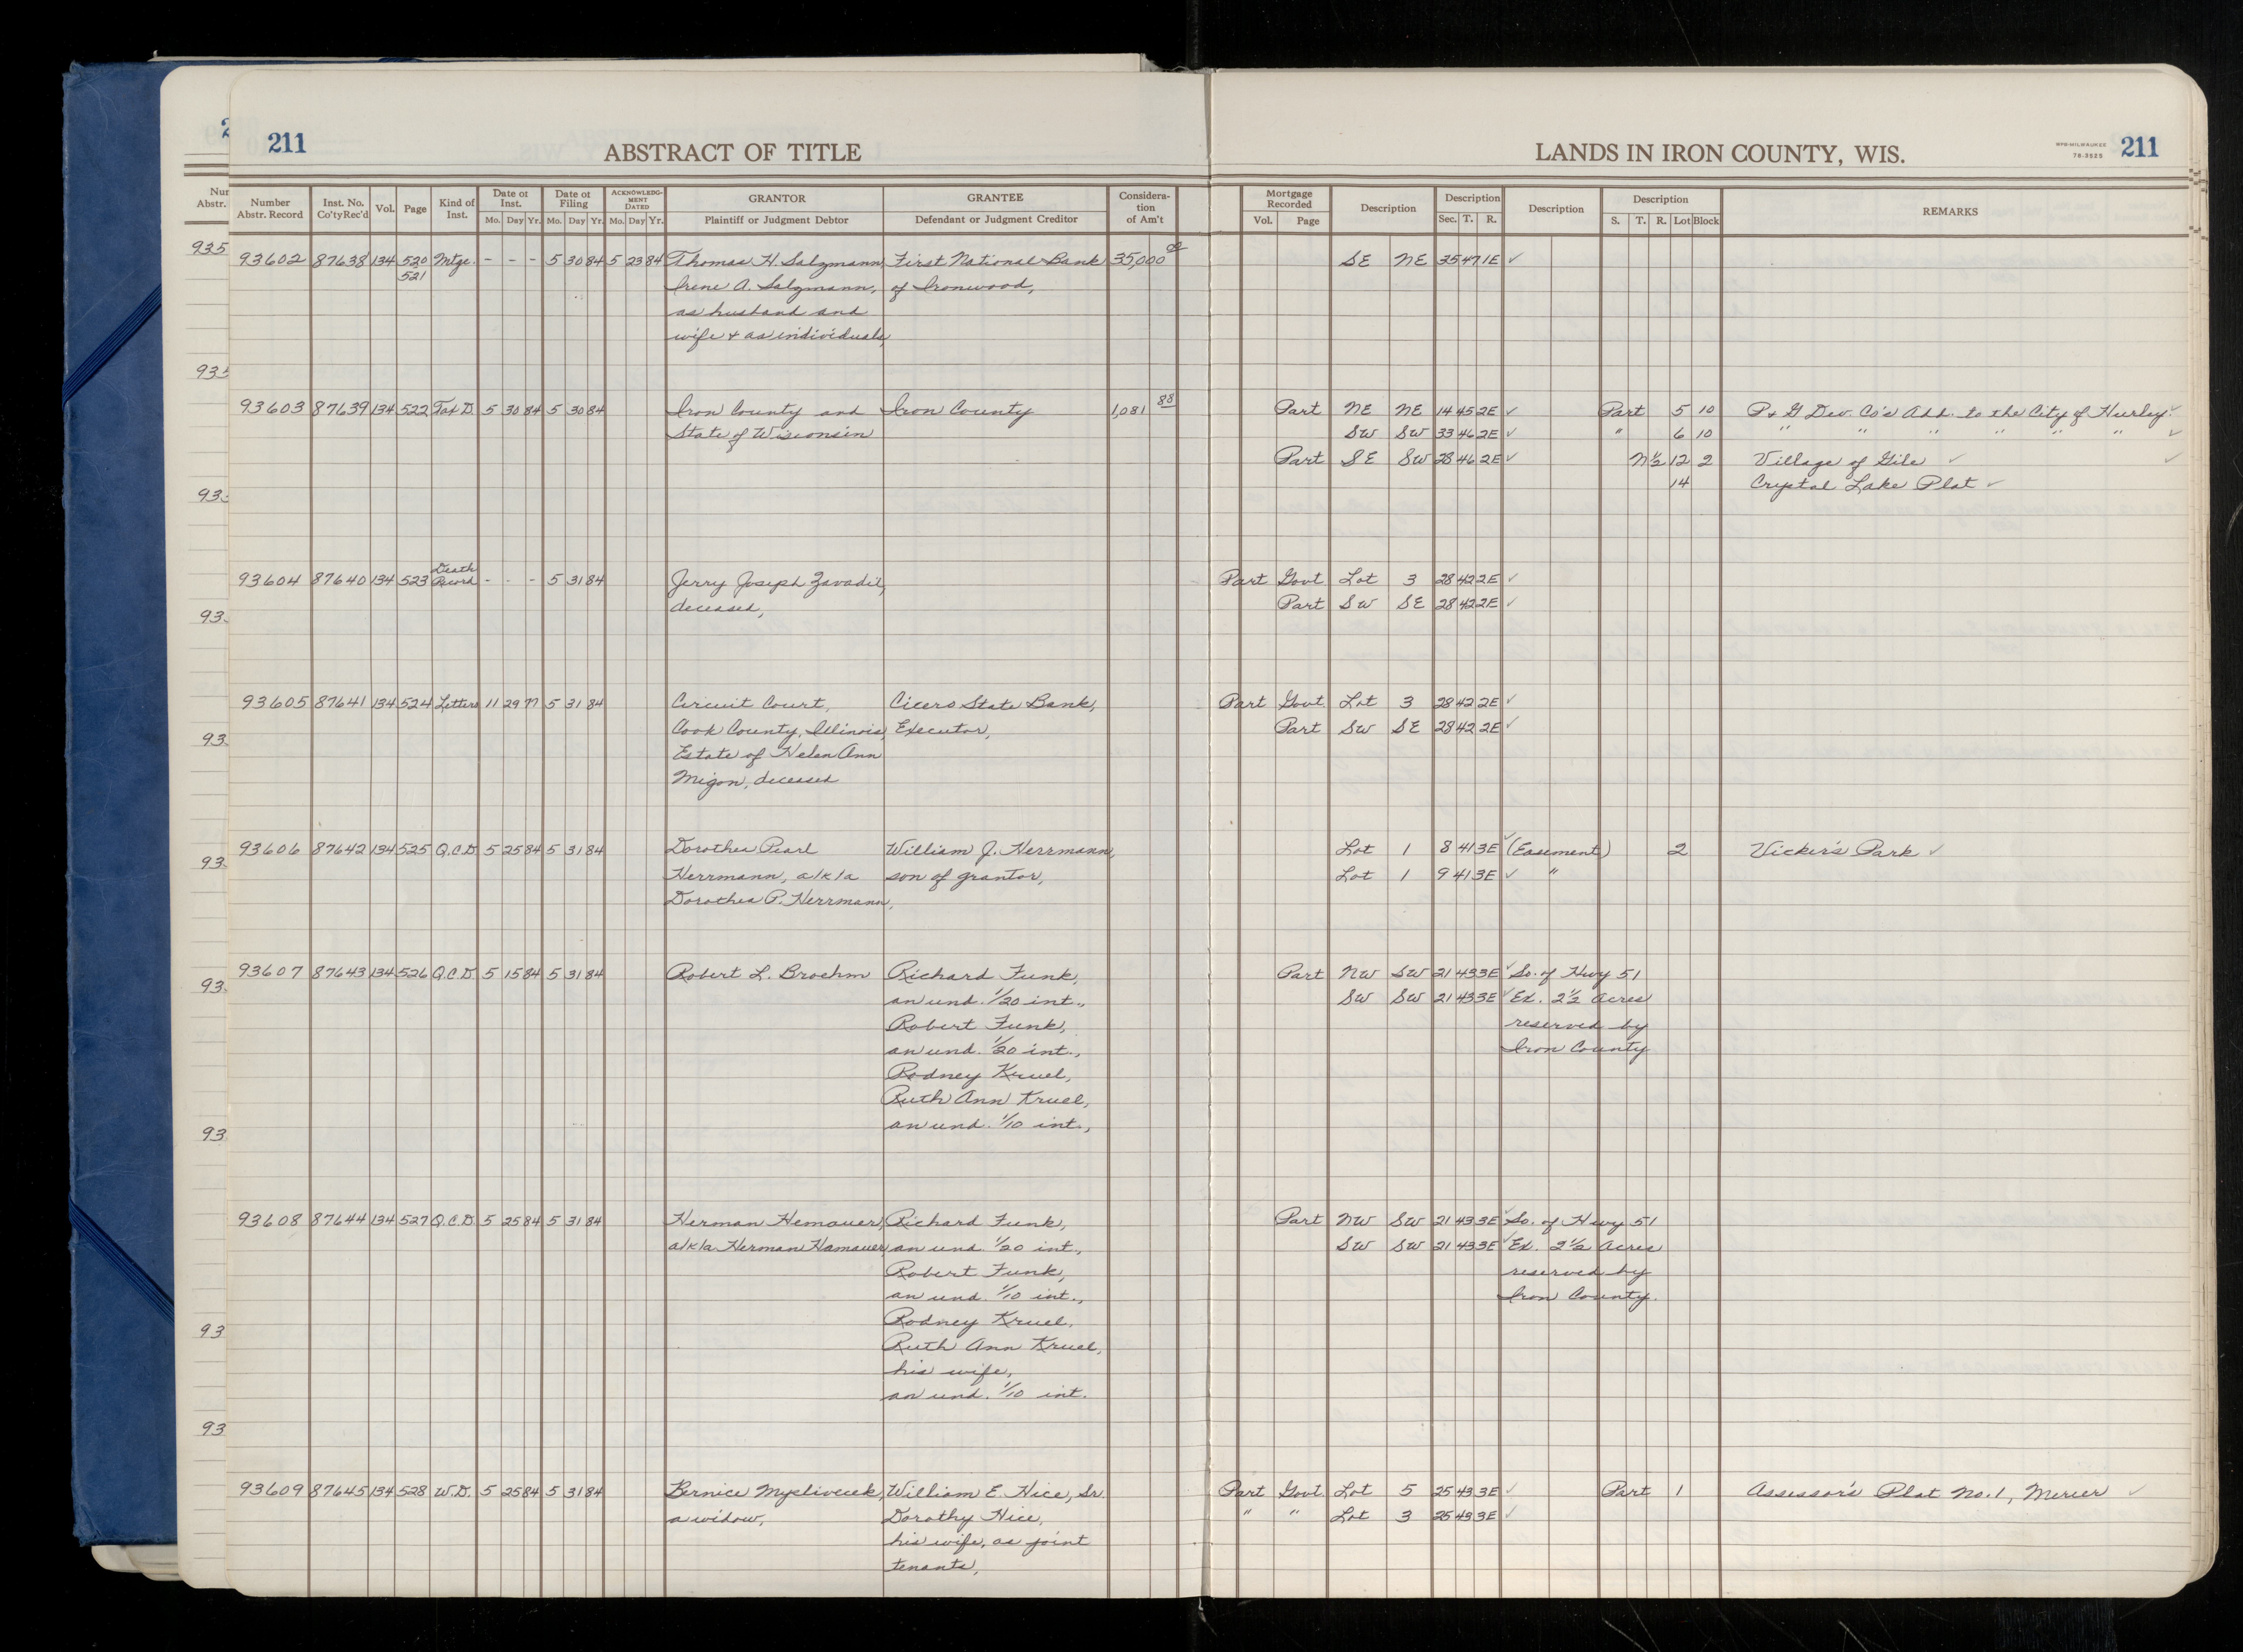 211 ABSTRACT OF TITLE LANDS IN IRON COUNTY, WIS. WPB-MILWAUKEE 78-3525 211
Number Abstr. Record Inst. No. Co'ty Rec'd Vol. Page Kind of Inst. Date of Inst. Mo. Day Yr. Date of Filing Mo. Day Yr. ACKNOWLEDGMENT DATED Mo. Day Yr. GRANTOR Plaintiff or Judgment Debtor GRANTEE Defendant or Judgment Creditor Consideration of Am't Mortgage Recorded Vol. Page Description Description Sec. T. R. Description Description S. T. R. Lot Block REMARKS
93602 87638 134 520 Mtge. - - - 5 30 84 5 23 84 Thomas H. Salzmann, First National Bank 35,000 00 SE NE 35 47 1E ✓
521 Irene A. Salzmann, of Ironwood,
as husband and
wife & as individuals,
93603 87639 134 522 Tax D. 5 30 84 5 30 84 Iron County and Iron County 1,081 88 Part NE NE 14 45 2E ✓ Part 5 10 P & G Dev. Co's Add. to the City of Hurley ✓
State of Wisconsin SW SW 33 46 2E ✓ " 6 10 " " " " " " ✓
Part SE SW 28 46 2E ✓ N½ 12 2 Village of Gile ✓ ✓
14 Crystal Lake Plat ✓
93604 87640 134 523 Death Record - - - 5 31 84 Jerry Joseph Zavadil, Part Govt Lot 3 28 42 2E ✓
deceased, Part SW SE 28 42 2E ✓
93605 87641 134 524 Letters 11 29 77 5 31 84 Circuit Court, Cicero State Bank, Part Govt. Lot 3 28 42 2E ✓
Cook County, Illinois, Executor, Part SW SE 28 42 2E ✓
Estate of Helen Ann
Migon, deceased
93606 87642 134 525 Q.C.D. 5 25 84 5 31 84 Dorothea Pearl William J. Herrmann, Lot 1 8 41 3E ✓ (Easement) 2 Vicker's Park ✓
Herrmann, a/k/a son of grantor, Lot 1 9 41 3E ✓ "
Dorothea P. Herrmann,
93607 87643 134 526 Q.C.D. 5 15 84 5 31 84 Robert L. Broehm Richard Funk, Part NW SW 21 43 3E ✓ So. of Hwy 51
an und. 1/20 int., SW SW 21 43 3E ✓ Ex. 2½ acres
Robert Funk, reserved by
an und. 1/20 int., Iron County
Rodney Kruel,
Ruth Ann Kruel,
an und. 1/10 int.,
93608 87644 134 527 Q.C.D. 5 25 84 5 31 84 Herman Hemauer, Richard Funk, Part NW SW 21 43 3E ✓ So. of Hwy 51
a/k/a Herman Hamauer, an und. 1/20 int., SW SW 21 43 3E ✓ Ex. 2½ acres
Robert Funk, reserved by
an und. 1/10 int., Iron County.
Rodney Kruel,
Ruth Ann Kruel,
his wife,
an und. 1/10 int.
93609 87645 134 528 W.D. 5 25 84 5 31 84 Bernice Myslivecek, William E. Hice, Sr. Part Govt. Lot 5 25 43 3E ✓ Part 1 Assessor's Plat No. 1, Mercer ✓
a widow, Dorothy Hice, " " Lot 3 25 43 3E ✓
his wife, as joint
tenants,